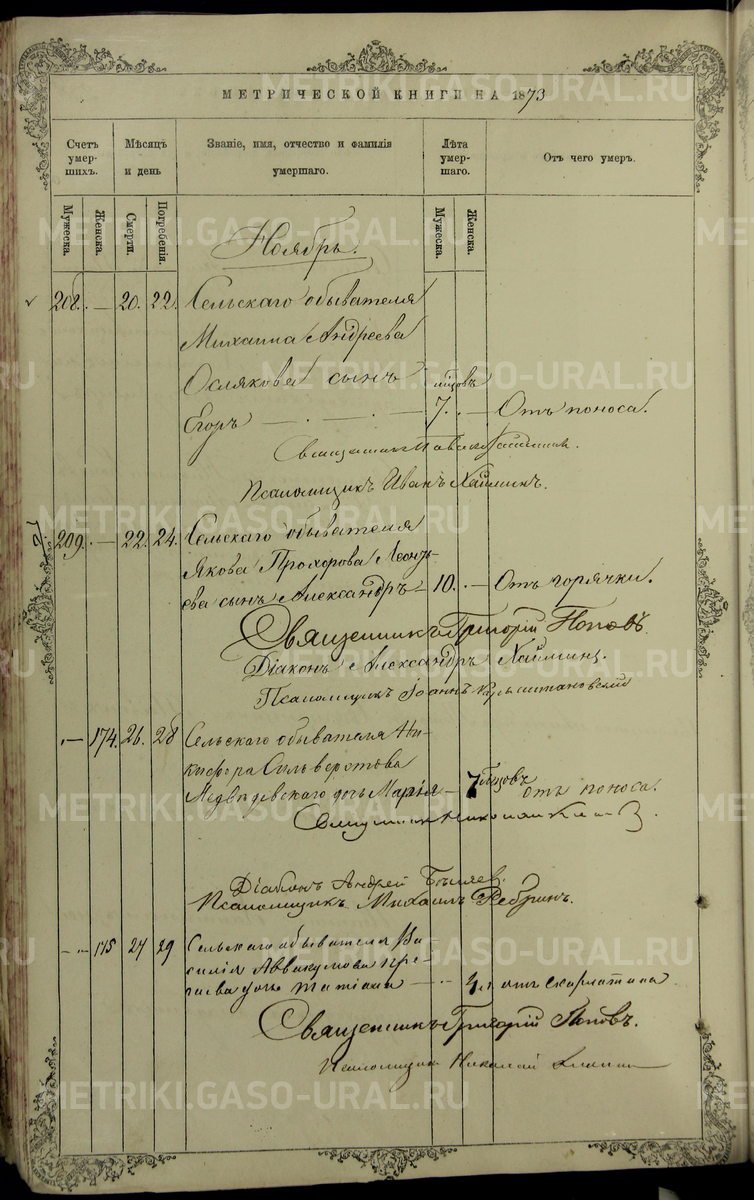 МЕТРИЧЕСКОЙ КНИГИ НА 1873
Счетъ умерших. Мѣсяцъ и день Званіе, имя, отчество и фамилія умершаго. Лѣта умершаго. Отъ чего умеръ.
Мужеска. Женска. Смерти. Погребенія. Мужеска. Женска.
Ноябрь.
208. — 20. 22. Сельскаго обывателя
Михаила Андреева
Ослякова сынъ мѣсяцовъ
Егоръ — . — . — 7. — Отъ поноса.
Священникъ
Псаломщикъ Иванъ Хайминъ.
209. — 22. 24. Сельскаго обывателя
Якова Прохорова Леонть-
ева сынъ Александръ — 10. — Отъ горячки.
Священникъ Григорій Поповъ.
Діаконъ Александръ Хайминъ.
Псаломщикъ Іоаннъ
— 174. 26. 28 Сельскаго обывателя Ни-
кифора Сильверстова
Медвѣдевскаго дочь Марія — 7 мѣсяцовъ отъ поноса.
Священникъ Николай
Діаконъ Андрей
Псаломщикъ Михаилъ Ребринъ.
— 175 27 29 Сельскаго обывателя Ва-
силія Аввакумова
дочь Татіана — 4 отъ скарлатины
Священникъ Григорій Поповъ.
Псаломщикъ Николай
METRIKI.GASO-URAL.RU